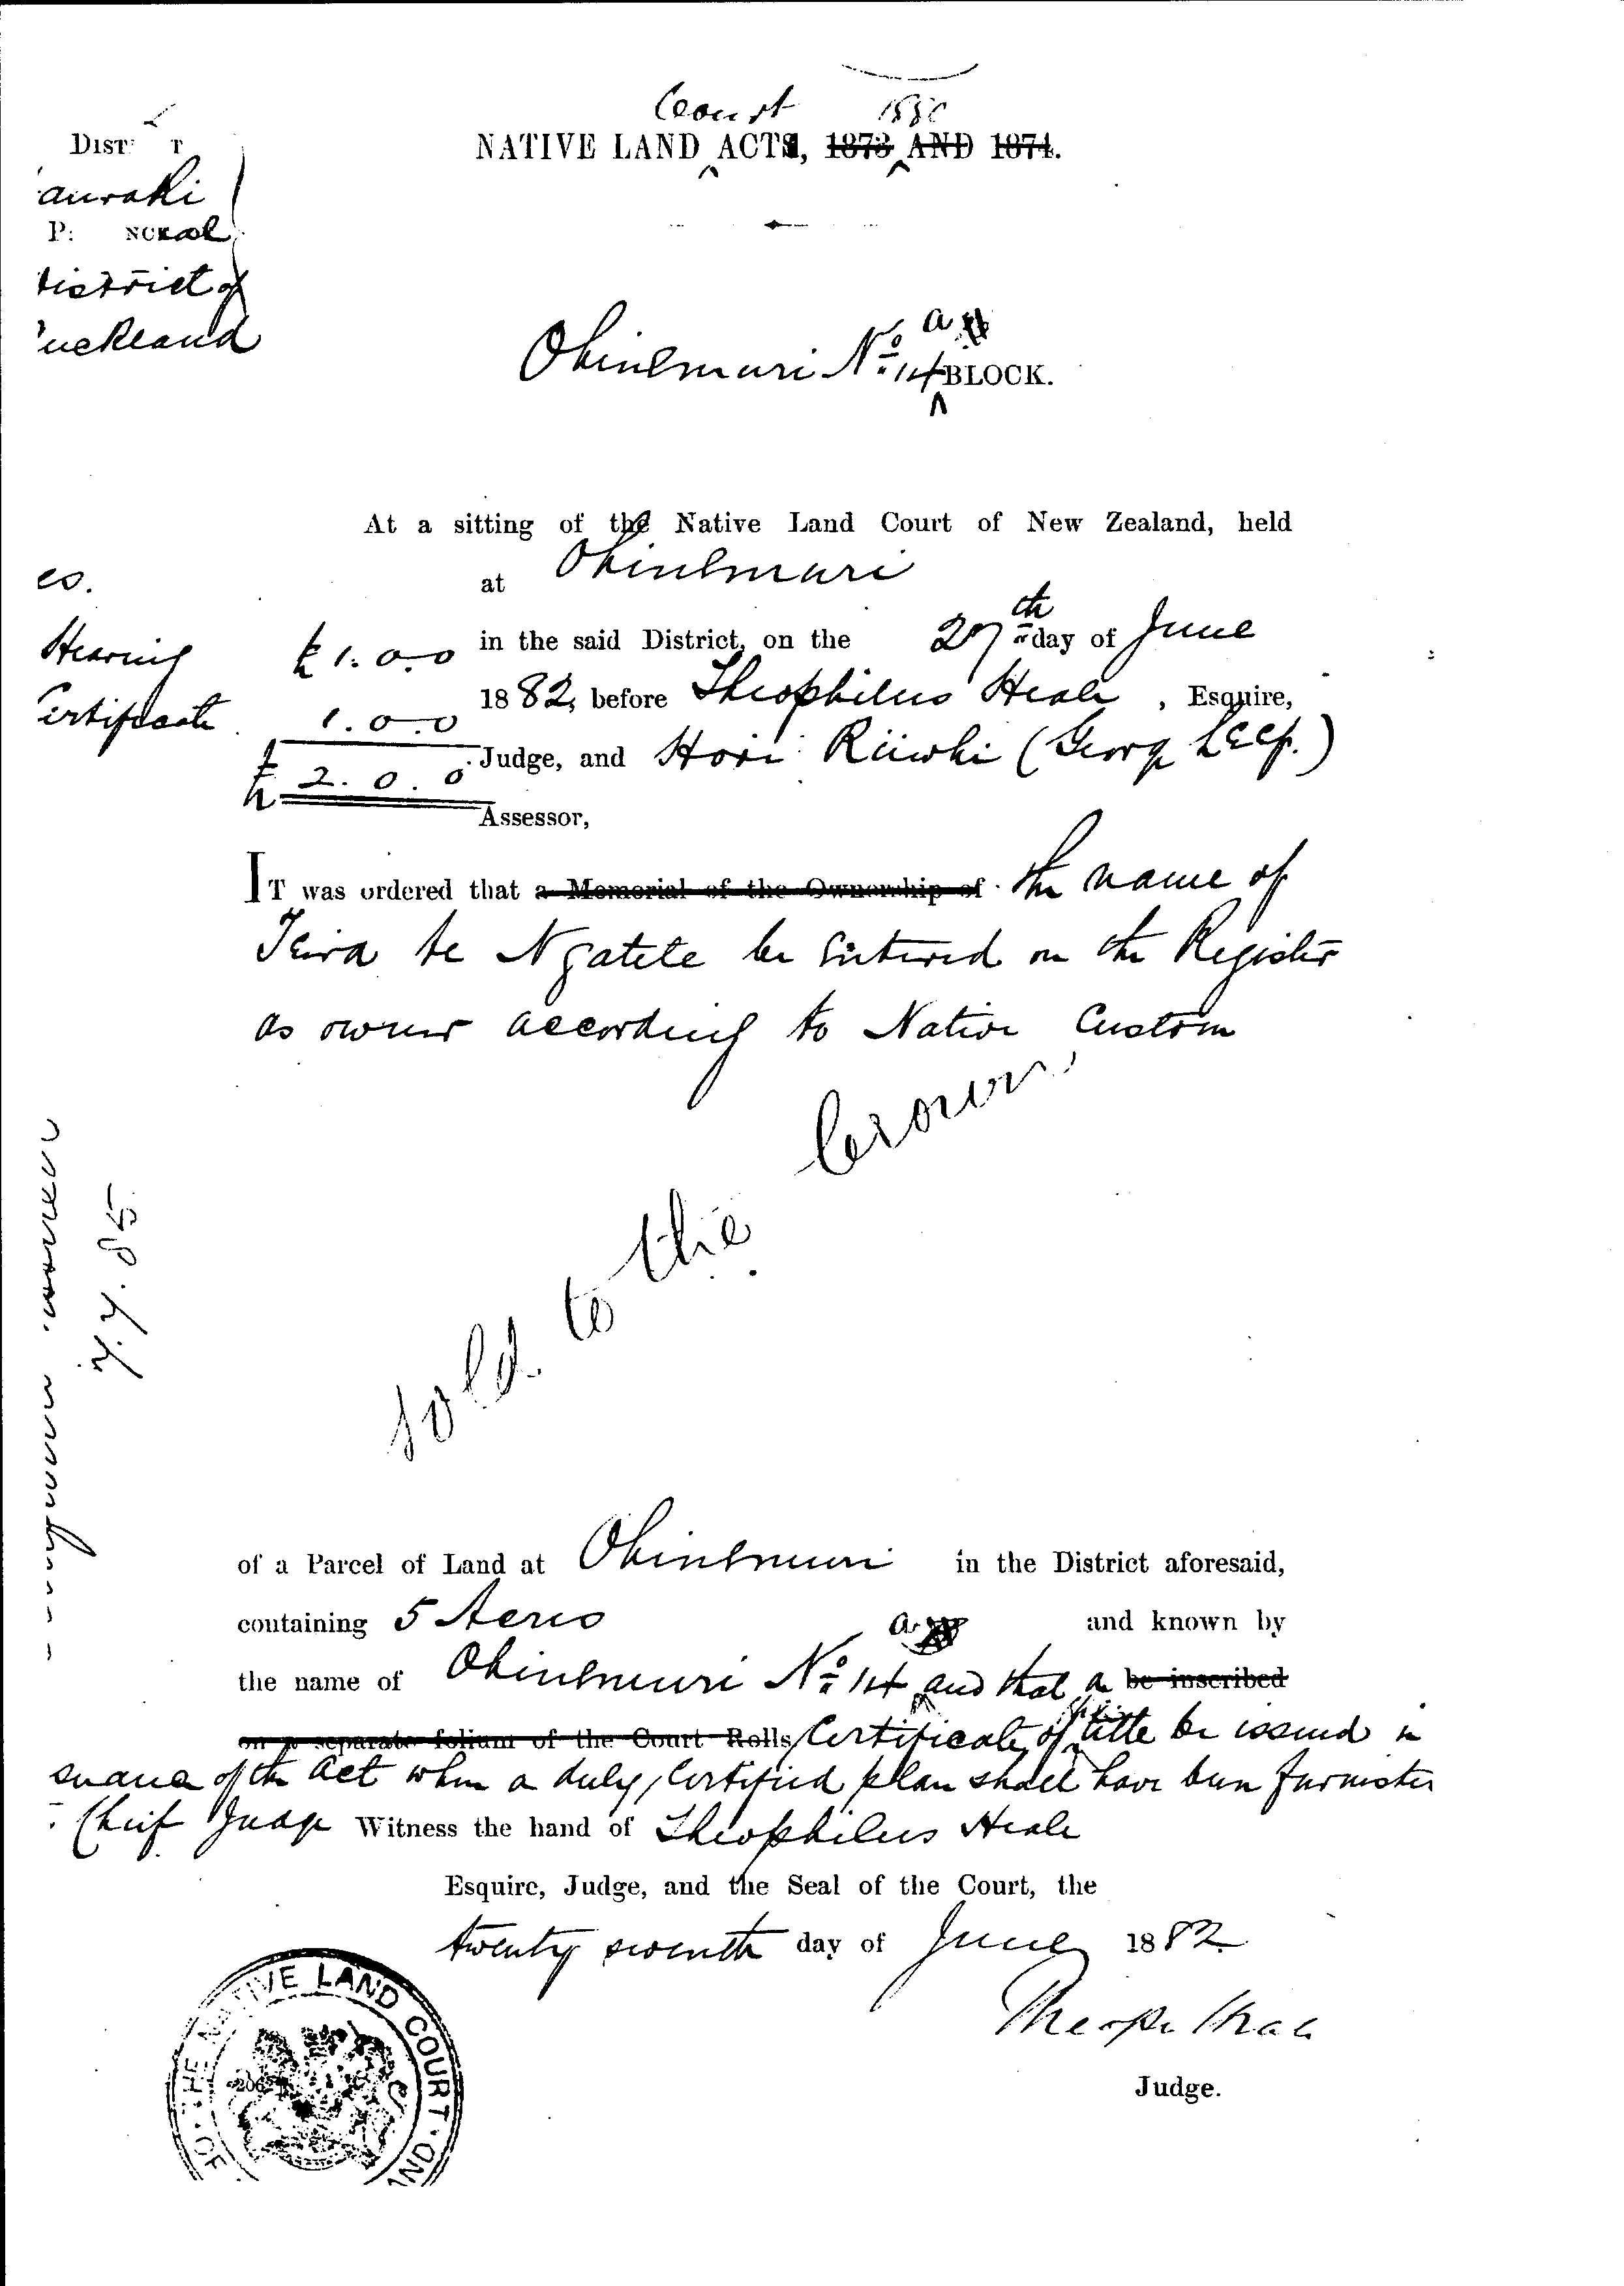 Court 1880
NATIVE LAND ACTS, 1873 AND 1874.
DIST T
auraki
P: NCIAL
district of
uckland
Ohinemuri No. 14 a BLOCK.
At a sitting of the Native Land Court of New Zealand, held
at Ohinemuri
in the said District, on the 27th day of June
1882, before Theophilus Heale, Esquire,
Judge, and Hori Riiwhi (George Leef.)
Assessor,
es.
Hearing £1.0.0
ertificate 1.0.0
£2.0.0
IT was ordered that a Memorial of the Ownership of the name of
Teira te Ngatete be entered on the Register
as owner according to Native Custom
sold to the Crown
7.7.85
of a Parcel of Land at Ohinemuri in the District aforesaid,
containing 5 Acres and known by
the name of Ohinemuri No. 14 a and that a be inscribed
on a separate folium of the Court Rolls Certificate of title be issued in
suance of the Act when a duly certified plan shall have been furnished
Chief Judge Witness the hand of Theophilus Heale
Esquire, Judge, and the Seal of the Court, the
twenty seventh day of June 1882
Theoph Heale
Judge.
THE NATIVE LAND COURT OF